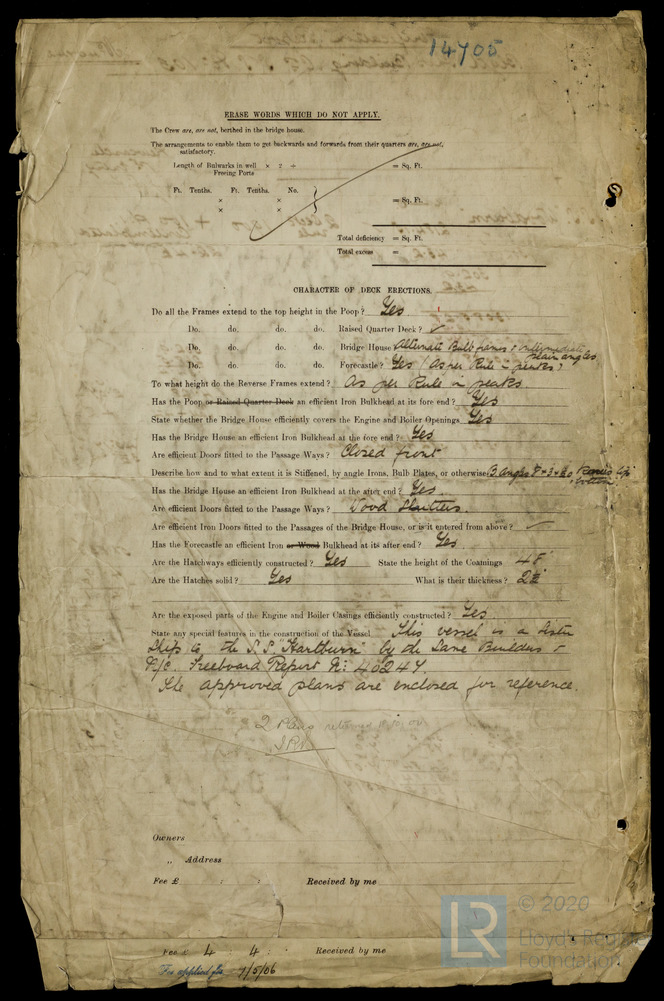 14705
ERASE WORDS WHICH DO NOT APPLY.
The Crew are, are not, berthed in the bridge house.
The arrangements to enable them to get backwards and forwards from their quarters are, are not,
satisfactory.
Length of Bulwarks in well × 2 ÷ = Sq. Ft.
Freeing Ports
Ft. Tenths. Ft. Tenths. No.
× = Sq. Ft.
×
Total deficiency = Sq. Ft.
Total excess =
CHARACTER OF DECK ERECTIONS.
Do all the Frames extend to the top height in the Poop? Yes
Do. do. do. do. Raised Quarter Deck? ✓
Do. do. do. do. Bridge House Alternate Bulb frames & intermediate plain angles
Do. do. do. do. Forecastle? Yes (As per Rule in peaks)
To what height do the Reverse Frames extend? As per Rule in peaks
Has the Poop or Raised Quarter Deck an efficient Iron Bulkhead at its fore end? Yes
State whether the Bridge House efficiently covers the Engine and Boiler Openings Yes
Has the Bridge House an efficient Iron Bulkhead at the fore end? Yes
Are efficient Doors fitted to the Passage Ways? Closed front
Describe how and to what extent it is Stiffened, by angle Irons, Bulb Plates, or otherwise B. Angs
Has the Bridge House an efficient Iron Bulkhead at the after end? Yes
Are efficient Doors fitted to the Passage Ways? Wood Shutters
Are efficient Iron Doors fitted to the Passages of the Bridge House, or is it entered from above? ✓
Has the Forecastle an efficient Iron or Wood Bulkhead at its after end? Yes
Are the Hatchways efficiently constructed? Yes State the height of the Coamings 48"
Are the Hatches solid? Yes What is their thickness? 2½
Are the exposed parts of the Engine and Boiler Casings efficiently constructed? Yes
State any special features in the construction of the Vessel This vessel is a sister
ship to the S.S. "Hartburn" by the same Builders &
Freeboard Report No. 40247
The approved plans are enclosed for reference.
2 Plans returned
Owners
„ Address
Fee £ : : Received by me
Fee £ 4 : 4 : Received by me
Fee applied for 7/5/06
LR © 2020
Lloyd's Register
Foundation